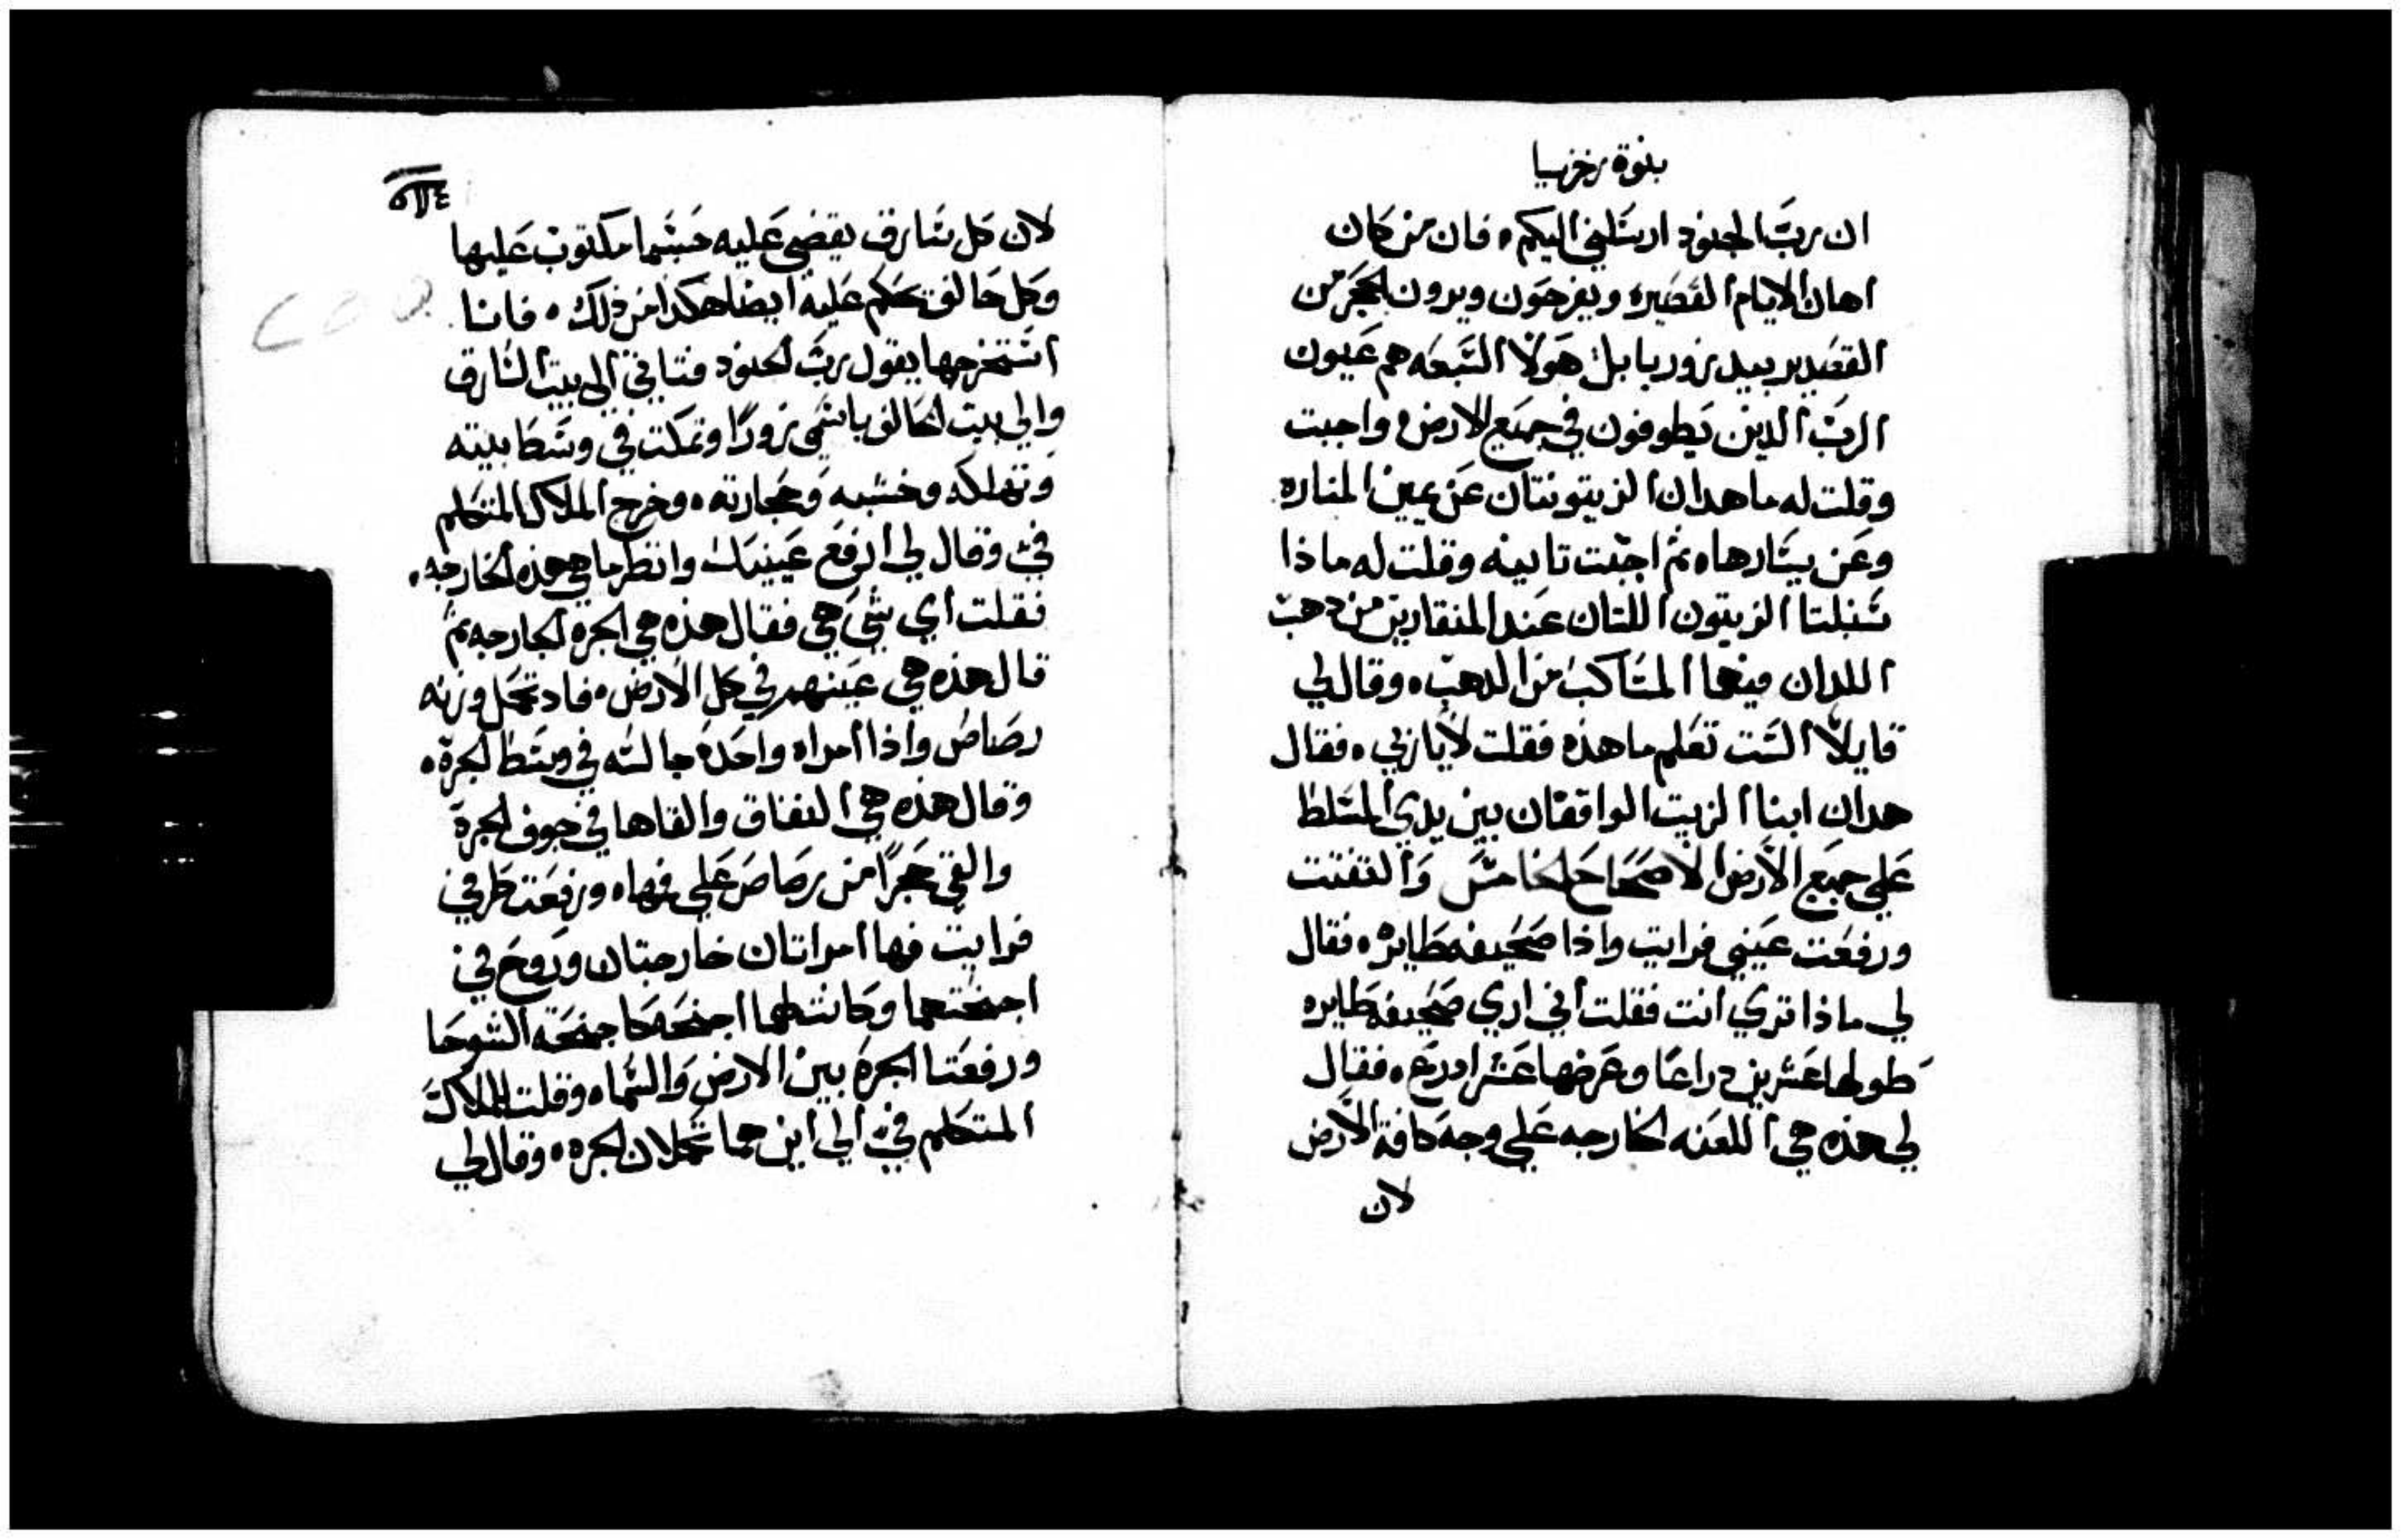 بنوة زخريا
ان رب الجنود ارسلني اليكم ٥ فان من كان
اهان الايام القصيره ويفرحون ويرون الحجر من
القصدير بيد زور بابل هولا السبعه هم عيون
الرب الذين يطوفون في جميع الارض ٥ واجبت
وقلت له ما هدان الزيتونتان عن يمين المناره
وعن يسارها ٥ ثم اجبت تانيه وقلت له ماذا
سنبلتا الزيتون اللتان عند المنقارين من دهب
اللدان فيهما المساكب من الدهب ٥ وقال لي
قايلا الست تعلم ما هذه فقلت لا يا ربي ٥ فقال
هدان ابنا الزيت الواقفان بين يدي المسلط
على جميع الارض الاصحاح الخامس والتفتت
ورفعت عيني فرايت واذا صحيفه طايره ٥ فقال
لي ماذا تري انت فقلت اني اري صحيفه طايره
طولها عشرين دراعا وعرضها عشر ادرع ٥ فقال
لي هذه هي اللعنه الخارجه علي وجه كافة الارض
لان
لان كل سارق يقضي عليه حسبما مكتوب عليها
وكل حالف يحكم عليه ايضا هكدا من ذلك ٥ فانا
استخرجها يقول رب الجنود فتاتي الي بيت السارق
والي بيت الحالف باسمي زورا وتمكت في وسط بيته
وتهلكه وخشبه وحجارته ٥ وخرج الملاك المتكلم
في وقال لي ارفع عينيك وانظر ما هي هذه الخارجه ٥
فقلت اي شي هي فقال هذه هي الجره الخارجه ثم
قال هذه هي عينهم في كل الارض ٥ فاد تحمل وزنه
رصاص واذا امراه واحده جالسه في وسط الجرة ٥
وقال هذه هي النفاق والقاها في جوف الجرة
والقي حجرا من رصاص علي فها ٥ ورفعت طرفي
فرايت فها امراتان خارجتان وروح في
اجنحتهما وكانت لهما اجنحه كاجنحة الشوحا
ورفعتا الجره بين الارض والسما ٥ وقلت للملاك
المتكلم في الي اين هما تحملان الجره ٥ وقال لي